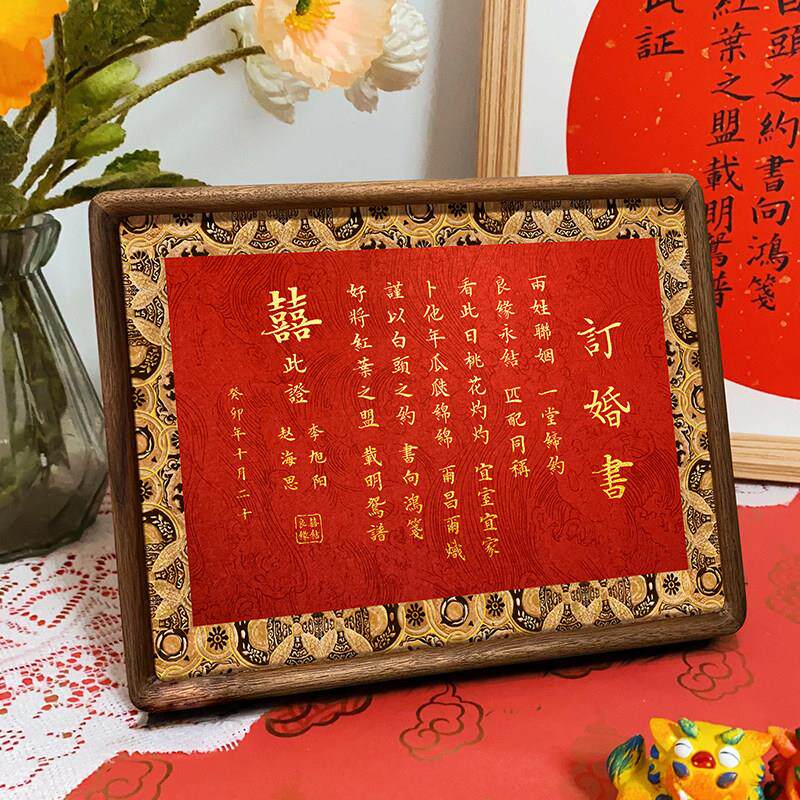 訂婚書
兩姓聯姻 一堂締約
良緣永結 匹配同稱
看此日桃花灼灼 宜室宜家
卜他年瓜瓞綿綿 爾昌爾熾
謹以白頭之約 書向鴻箋
好將紅葉之盟 載明鴛譜
囍此證
李旭阳
赵海思
癸卯年十月二十
白頭之約書向鴻箋
紅葉之盟載明鴛譜
此証